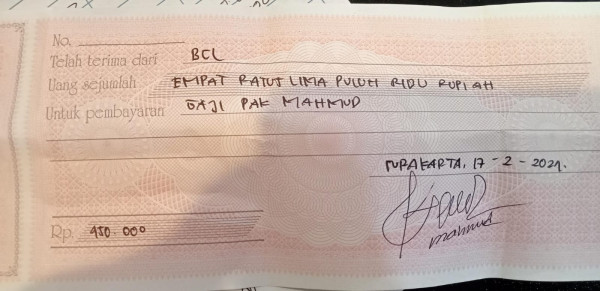 No.
Telah terima dari BCL
Uang sejumlah EMPAT RATUS LIMA PULUH RIBU RUPIAH
Untuk pembayaran GAJI PAK MAHMUD
PURAKARTA, 17 - 2 - 2021.
mahmud
Rp. 450.000